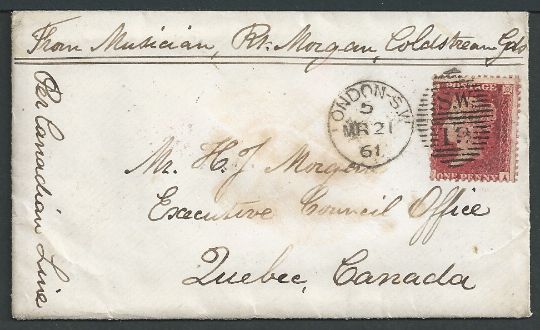 From Musician, Rt. Morgan, Coldstream Gds
Per Canadian Line
LONDON-S.W
5
MR 21
61
POSTAGE
S.W
ONE PENNY
Mr. H. J. Morgan
Executive Council Office
Quebec, Canada